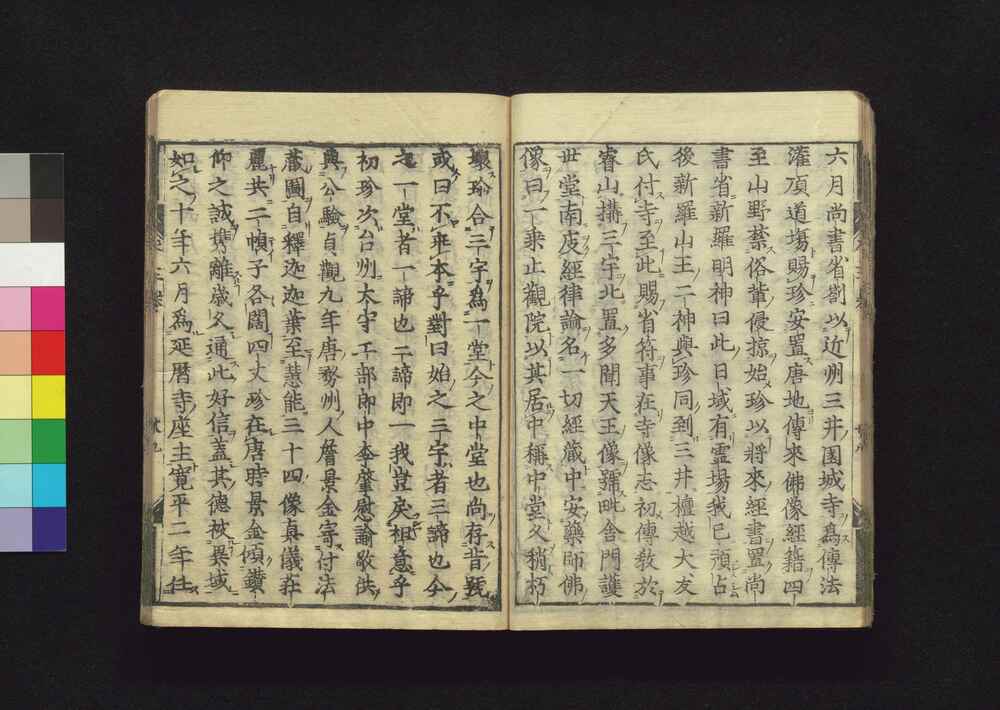 六月尚書省劄以近州三井園城寺爲傳法
灌頂道塲賜珍安置唐地傳來佛像經籍四
至山野禁俗輩侵掠始珍以將來經書置尚
書省新羅明神曰此日域有霊場我已預占
後新羅山王二神與珍同到三井檀越大友
氏付寺至此賜省符事在寺像志初傳敎於
睿山搆三宇北置多聞天王像號毗舍門護
世堂南皮經律論名一切經藏中安藥師佛
像曰一乘止觀院以其居中稱中堂久稍朽
壞珍合三宇爲一堂今之中堂也尚存昔號
或曰不乖本乎對曰始之三宇者三諦也今
之一堂者一諦也三諦即一我豈戾祖意乎
初珍次台州太守工部郎中李肇慰諭敬供
典公驗貞觀九年唐務州人詹景金寄付法
藏圖自釋迦迦葉至慧能三十四像眞儀莊
麗共二幀子各闊四丈珍在唐時景金傾鑚
仰之誠携離歲久通此好信蓋其德被異域
如之十年六月爲延曆寺座主寛平二年任